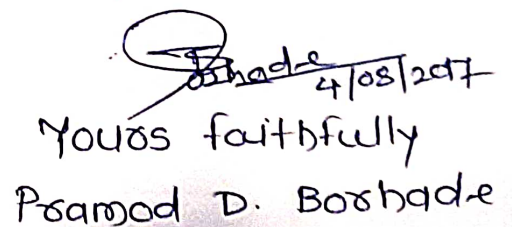 Borhade
4/08/2017
Yours faithfully
Pramod D. Borhade